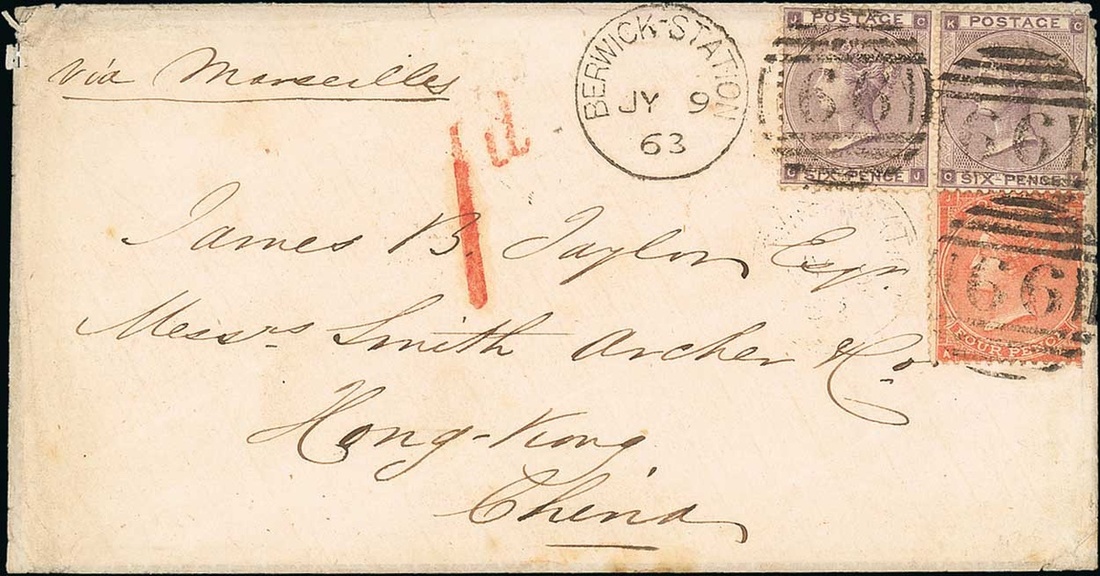 via Marseilles
1d
BERWICK-STATION
JY 9
63
J POSTAGE C
66
C SIX-PENCE J
K POSTAGE C
66
C SIX-PENCE
66
FOUR PENCE
James B. Taylor Esqr.
Messrs Smith Archer & Co.
Hong-Kong
China